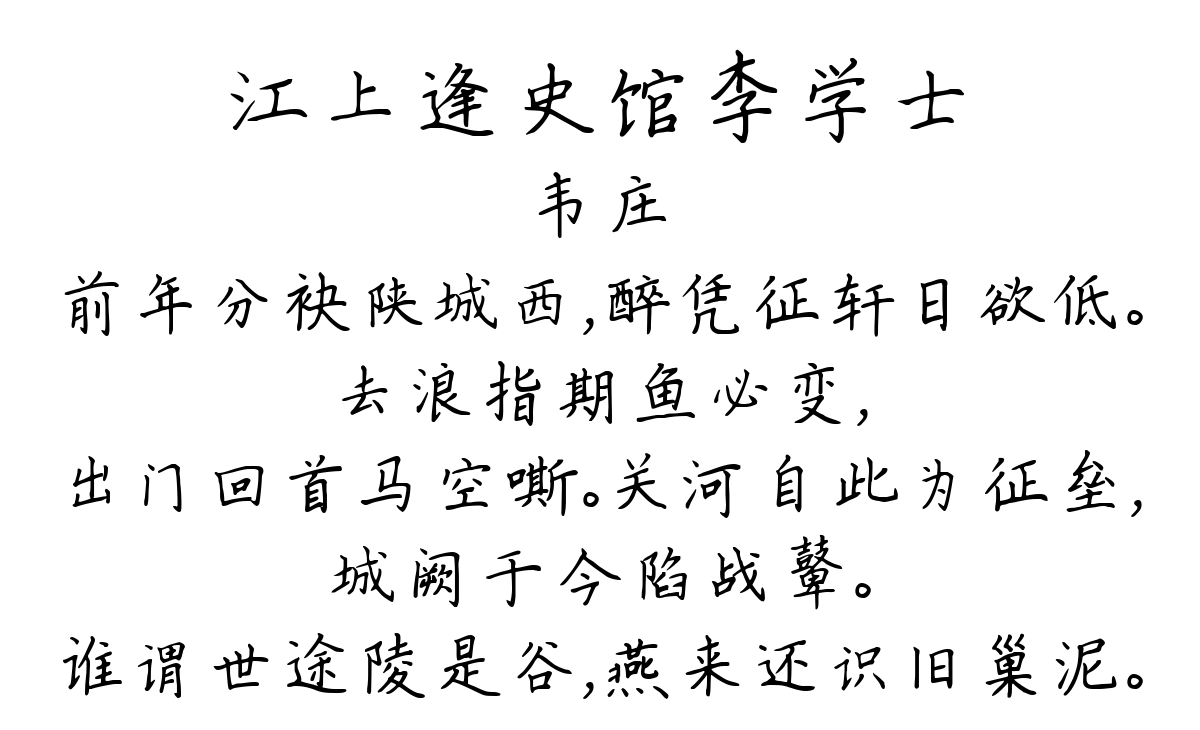 江上逢史馆李学士
韦庄
前年分袂陕城西,醉凭征轩日欲低。
去浪指期鱼必变,
出门回首马空嘶。关河自此为征垒,
城阙于今陷战鼙。
谁谓世途陵是谷,燕来还识旧巢泥。